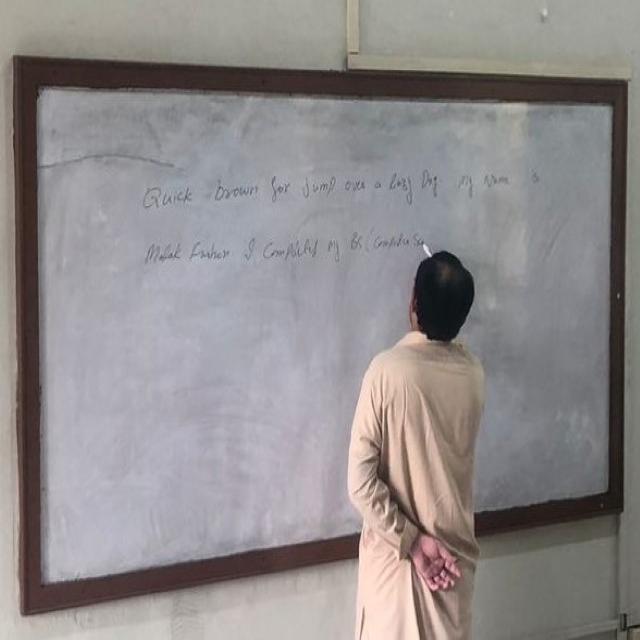 Quick brown fox jump over a lazy Dog my name is
Malak I Completed my BS (Computer Sc